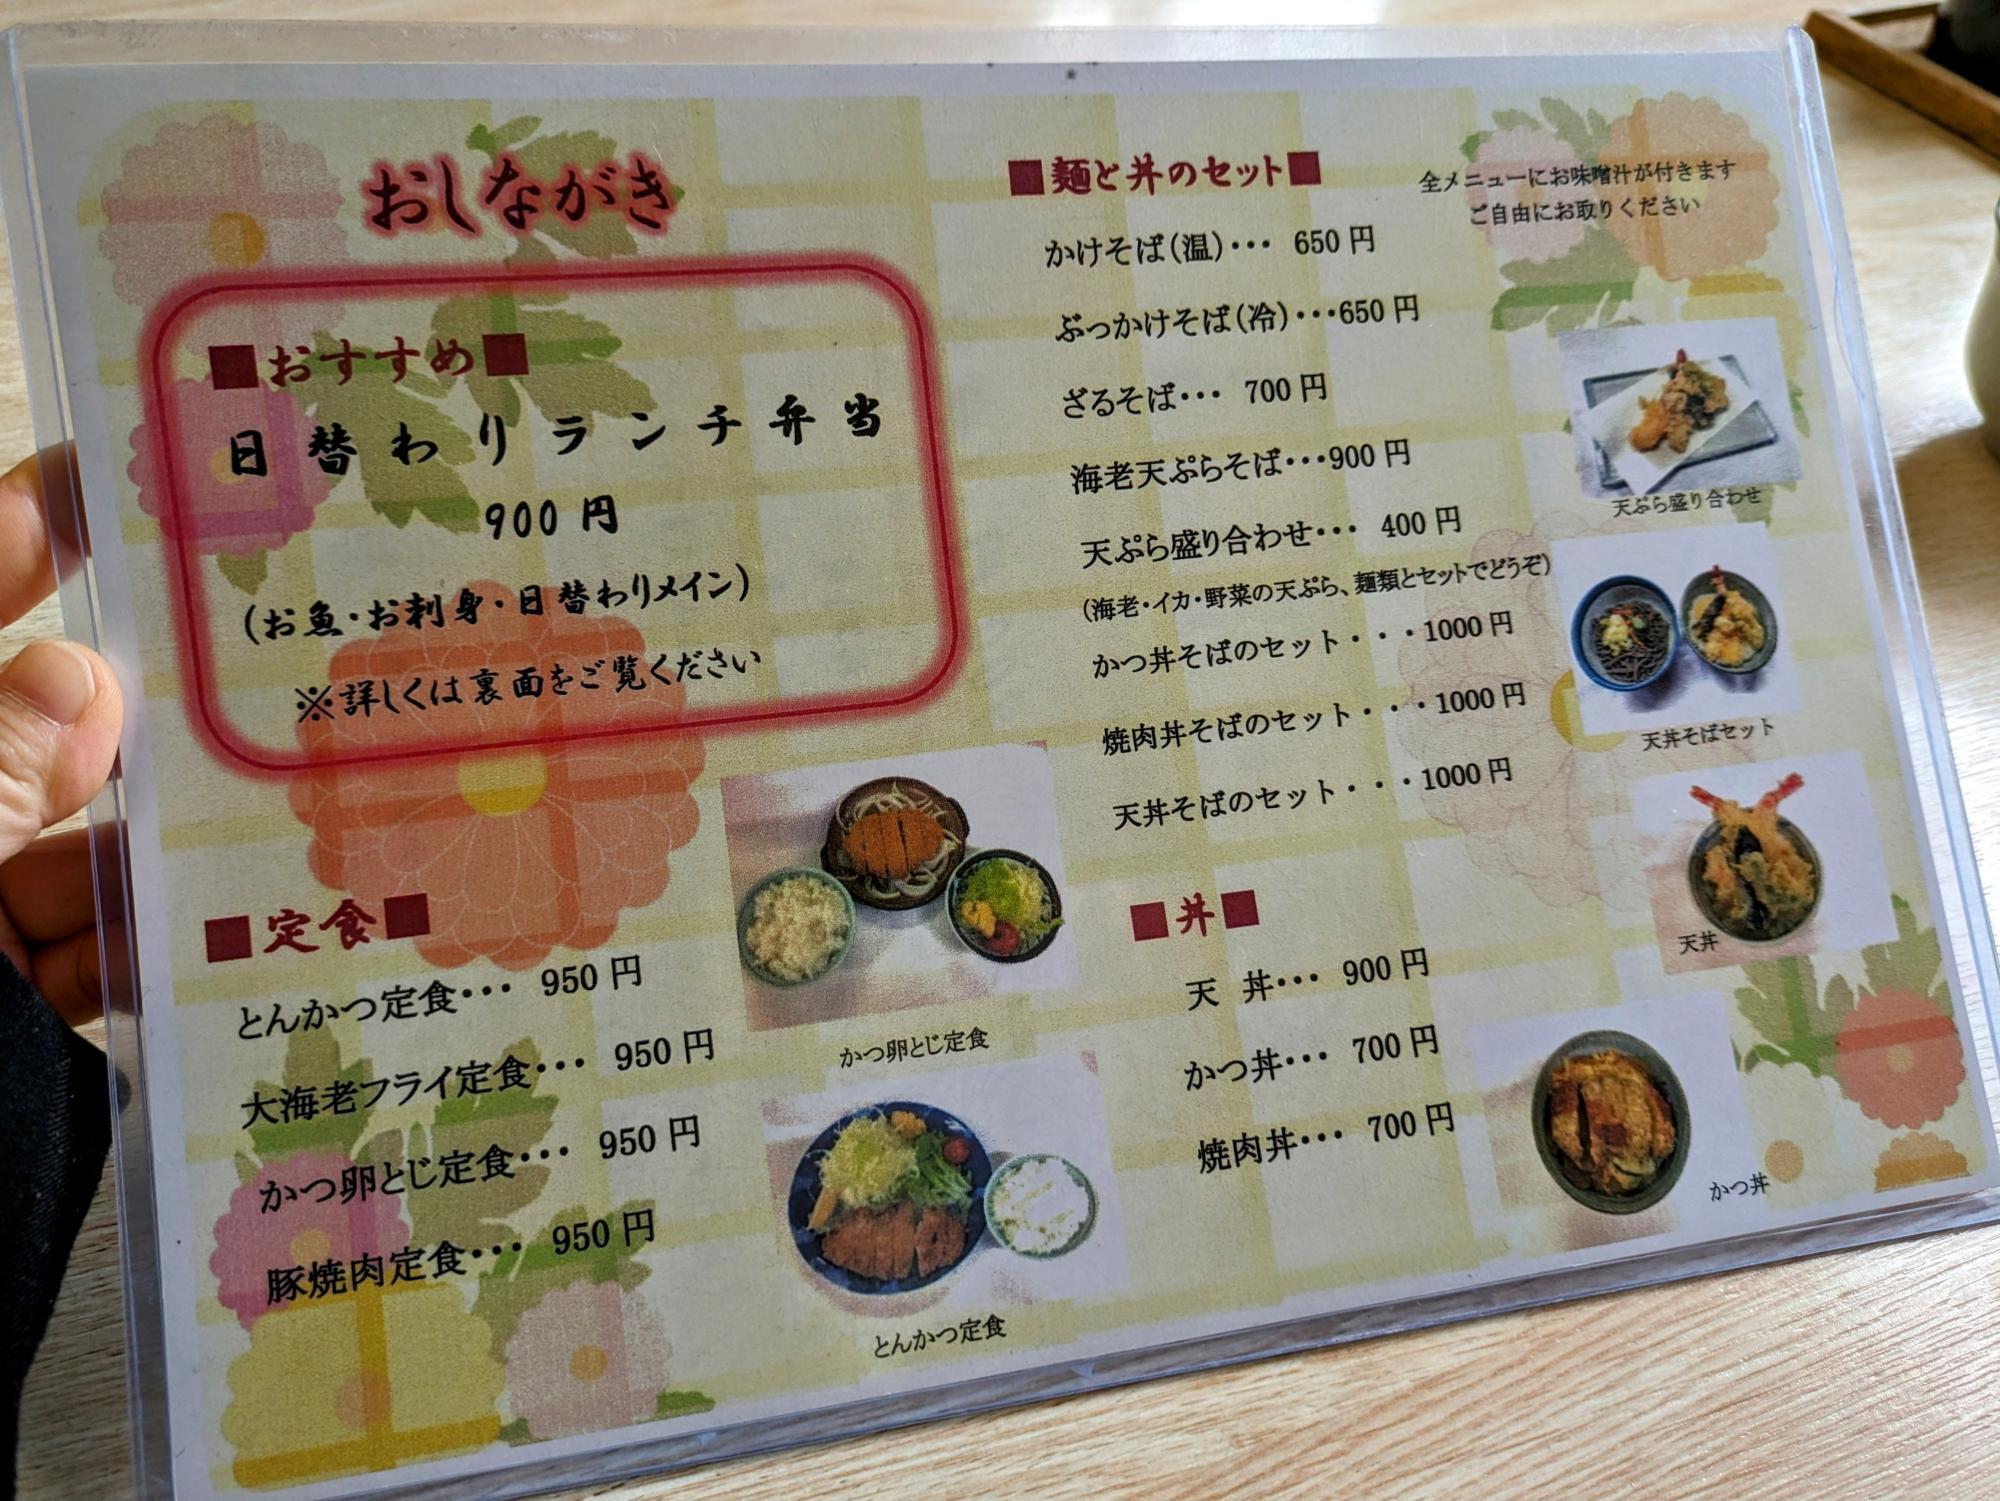 おしながき
■おすすめ■
日替わりランチ弁当
900円
(お魚・お刺身・日替わりメイン)
※詳しくは裏面をご覧ください
■定食■
とんかつ定食・・・ 950円
大海老フライ定食・・・ 950円
かつ卵とじ定食・・・ 950円
豚焼肉定食・・・ 950円
かつ卵とじ定食
とんかつ定食
■麺と丼のセット■
全メニューにお味噌汁が付きます
ご自由にお取りください
かけそば(温)・・・ 650円
ぶっかけそば(冷)・・・650円
ざるそば・・・ 700円
海老天ぷらそば・・・900円
天ぷら盛り合わせ・・・ 400円
(海老・イカ・野菜の天ぷら、麺類とセットでどうぞ)
かつ丼そばのセット・・・1000円
焼肉丼そばのセット・・・1000円
天丼そばのセット・・・1000円
天ぷら盛り合わせ
天丼そばセット
天丼
■丼■
天 丼・・・ 900円
かつ丼・・・ 700円
焼肉丼・・・ 700円
かつ丼